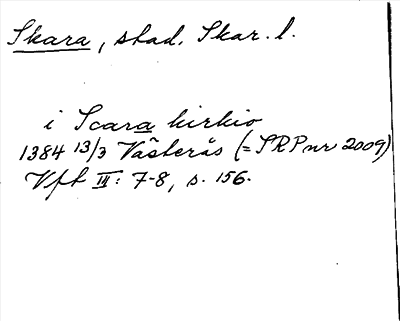 Skara, stad. Skar. l.
i Scara kirkio
1384 13/3 Västerås (= SRP nr 2009)
Vft III: 7-8, s. 156.